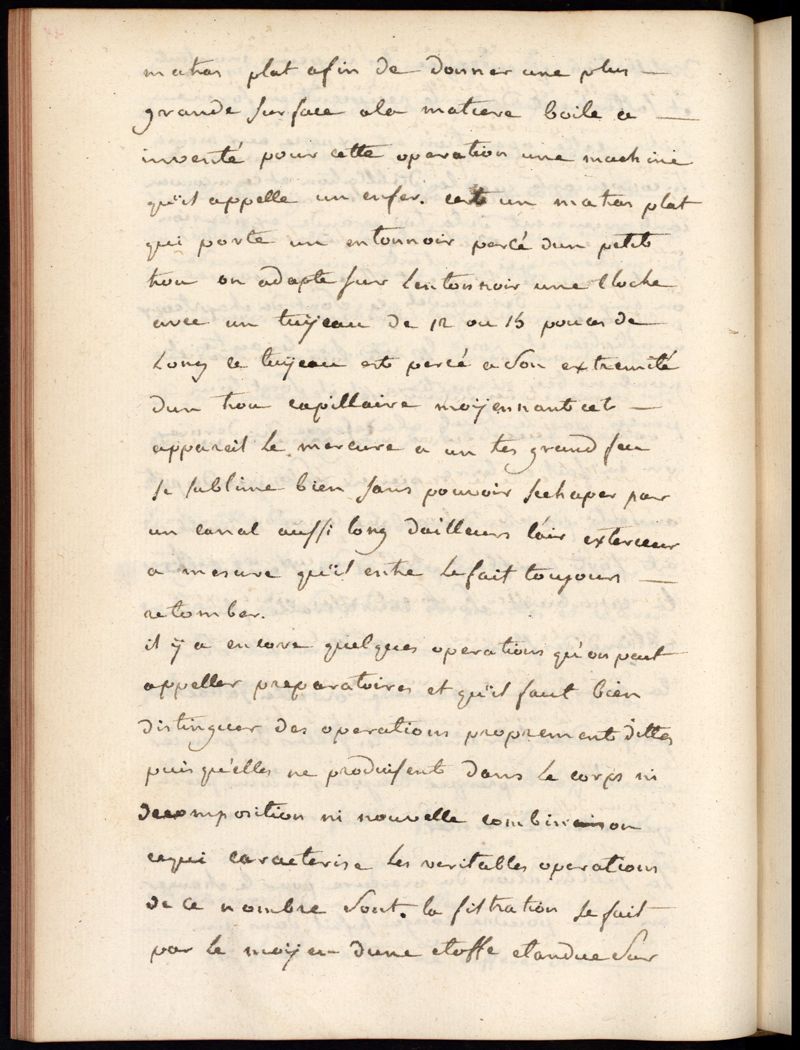 matras plat afin de donner une plus —
grande surface ala matiere boile a —
inventé pour cette operation une machine
qu'il appelle un enfer. cest un matras plat
qui porte un entonnoir percé dun petit
trou on adapte sur lentonnoir une cloche
avec un tuÿeau de 12 ou 15 pouces de
long ce tuÿeau est percé a son extremité
dun trou capillaire moÿennant cet —
appareil le mercure a un tes grand feu
se sublime bien sans pouvoir sechaper par
un canal aussi long dailleurs láir exterieur
a mesure qu'il entre le fait toujours —
retomber.
il ÿ a encore quelques operations qu'on peut
appeller preparatoires et qu'il faut bien
distinguer des operations proprement dittes
puis qu'elles ne produisent dans le corps ni
decomposition ni nouvelle combinaison
cequi caracterise les veritables operations
de ce nombre sont. la filtration se fait
par le moÿen dune etoffe etandue sur